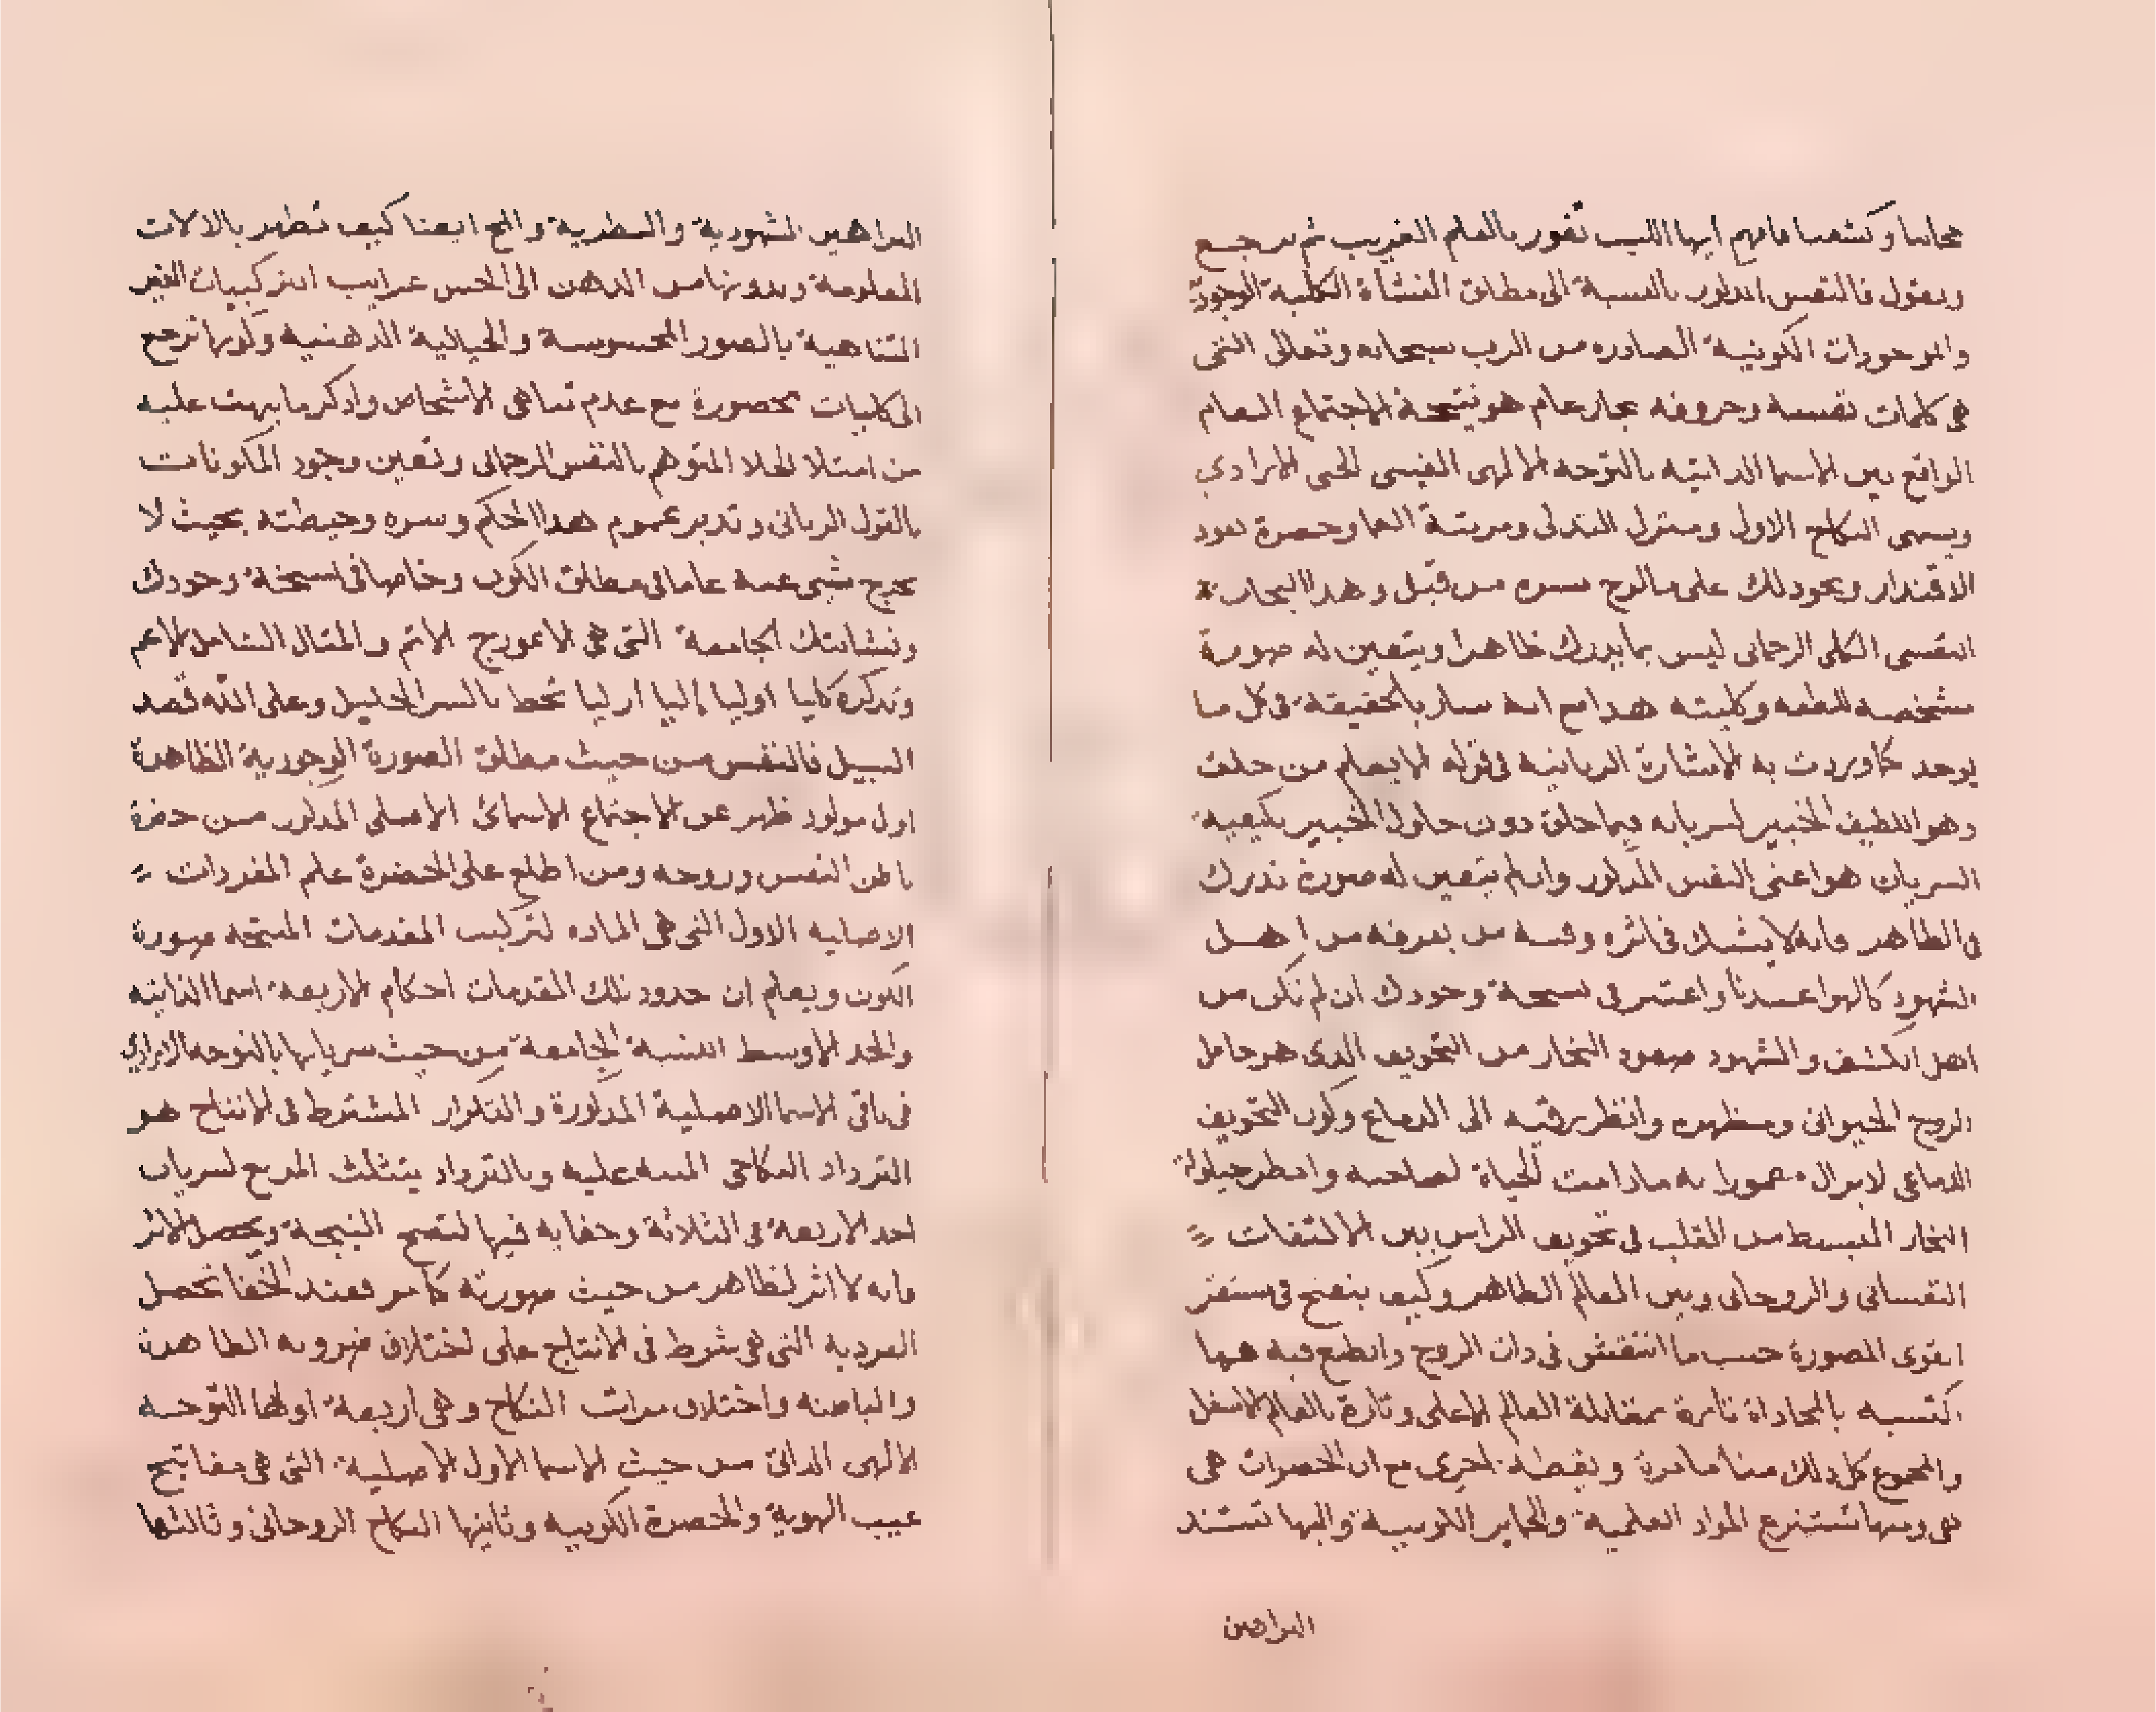 وكشفنا فافهم ايها اللبيب تفوز بالعلم الغريب ثم نرجع
ونقول فالنفس المذكور بالنسبة الى مطلق النشأة الكلية الوجودية
والموجودات الكونية الصادره من الرب سبحانه وتعالى التى
هى كلمات نفسه وحروفه بخار عام هو نتيجة الاجتماع العام
الواقع بين الاسما الذاتيه بالتوجه الالهى الغيبى الحبى الارادي
ويسمى النكاح الاول ومنزل التدلى ومرتبة العما وحضرة نفوذ
الاقتدار ونحو ذلك على ما لوح بسره من قبل وهذا البخار
النفسى الكلى الرحمانى ليس بما يدرك ظاهرا ويتعين له صورة
مشخصه للطفه وكليته هذا مع انه سار بالحقيقة فى كل ما
يوجد كما وردت به الاشارة الربانيه فى قوله الا يعلم من خلق
وهو اللطيف الخبير لسريانه فيما خلق دون حلول الخبير بكيفية
السريان هو اعنى النفس المذكور وان لم يتعين له صورة تدرك
فى الظاهر فانه لا يشك فى اثره وفيه من يعرفه من اهل
الشهود كالهوا عندنا واعتبر فى نسخة وجودك ان لم تكن من
اهل الكشف والشهود صعود البخار من التجويف الذى هو حامل
الروح الحيوانى ومظهره وانظر رقيه الى الدماغ وكون التجويف
الدماغى لا يزال معمورا به ما دامت الحياة لصاحبه وانظر حيلولة
البخار المنبسط من القلب فى تجويف الراس بين الالتفات
النفسانى والروحانى وبين العالم الظاهر وكيف ينفتح فى مستقر
القوى المصورة حسب ما انتقش فى ذات الروح وانطبع فيه مما
اكتسبه بالمحاذاة تارة بمقابلة العالم الاعلى وتارة بالعالم الاسفل
والمجموع كل ذلك مناما مرة ويقظه اخرى مع ان الحضرات هى
هى ومنها تستنزع المواد العلمية والخماير الكونيية واليها تستند
البراهين
البراهين الشهودية والنظرية والمح ايضا كيف تظهر بالالات
المعلومة وبدونها من الذهن الى الحس غرايب التركيبات الغير
المتناهية بالصور المحسوسة والخيالية الذهنيه وكونها ترجع
الى كليات محصورة مع عدم تناهى الاشخاص واذكر ما نبهت عليه
من امتلا الخلا المتوهم بالنفس الرحمانى وتعين وجود المكونات
بالقول الربانى وتدبر عموم هذا الحكم وسره وحيطته بحيث لا
يخرج شى عنه عاما فى مطلق الكون وخاصا فى نسخة وجودك
ونشاتك الجامعة التى هى الانموذج الاتم والمثال الشامل الاعم
وتذكره كليا اوليا اليا ازليا تحط بالسر الجليل وعلى الله قصد
السبيل فالنفس من حيث مطلق الصورة الوجودية الظاهرة
اول مولود ظهر عن الاجتماع الاسمائى الاصلى المذكور من حضرة
باطن النفس وروحه ومن اطلع على الحضرة علم المفردات
الاصليه الاول التى هى الماده لتركيب المقدمات المنتجه صورة
الكون ويعلم ان حدود تلك المقدمات احكام الاربعة اسما الذاتيه
والحد الاوسط النسبة الجامعة من حيث سريانها بالتوجه الارادي
فى باقى الاسما الاصلية المذكورة والتكرار المشترط فى الانتاج هو
الترداد النكاحى المنبه عليه وبالترداد يتثلث المربع لسريان
احد الاربعة فى الثلاثة وخفايه فيها لتصح النتيجة ويحصل الاثر
فانه لا اثر لظاهر من حيث صورته كما مر فعند الخفا تحصل
الفرديه التى هى شرط فى الانتاج على اختلاف ضروبه الظاهرة
والباطنه واختلاف مراتب النكاح وهى اربعة اولها التوجه
الالهى الذاتى من حيث الاسما الاول الاصلية التى هى مفاتيح
غيب الهوية والحضرة الكونيه وثانيها النكاح الروحانى وثالثها